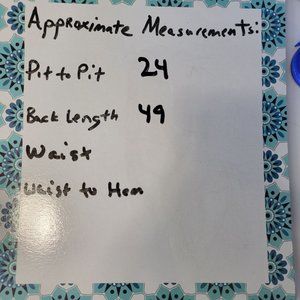 Approximate Measurements:
Pit to Pit 24
Back Length 49
Waist
Waist to Hem